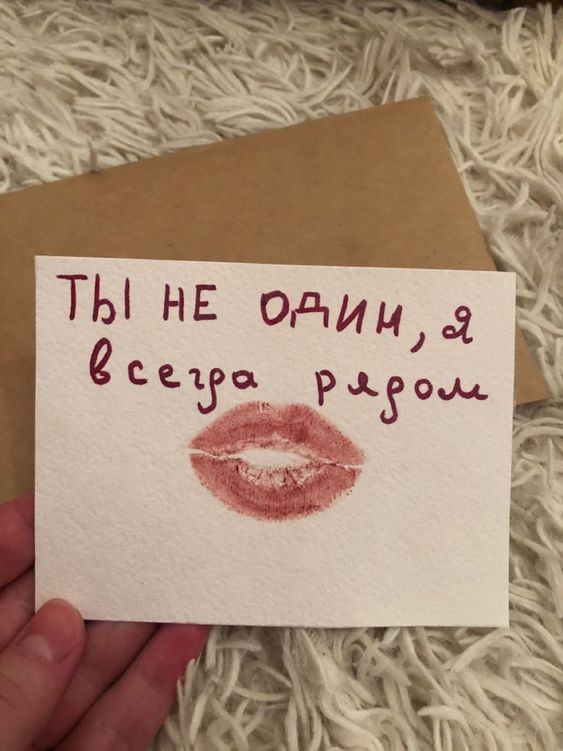 ТЫ НЕ ОДИН, я
всегда рядом